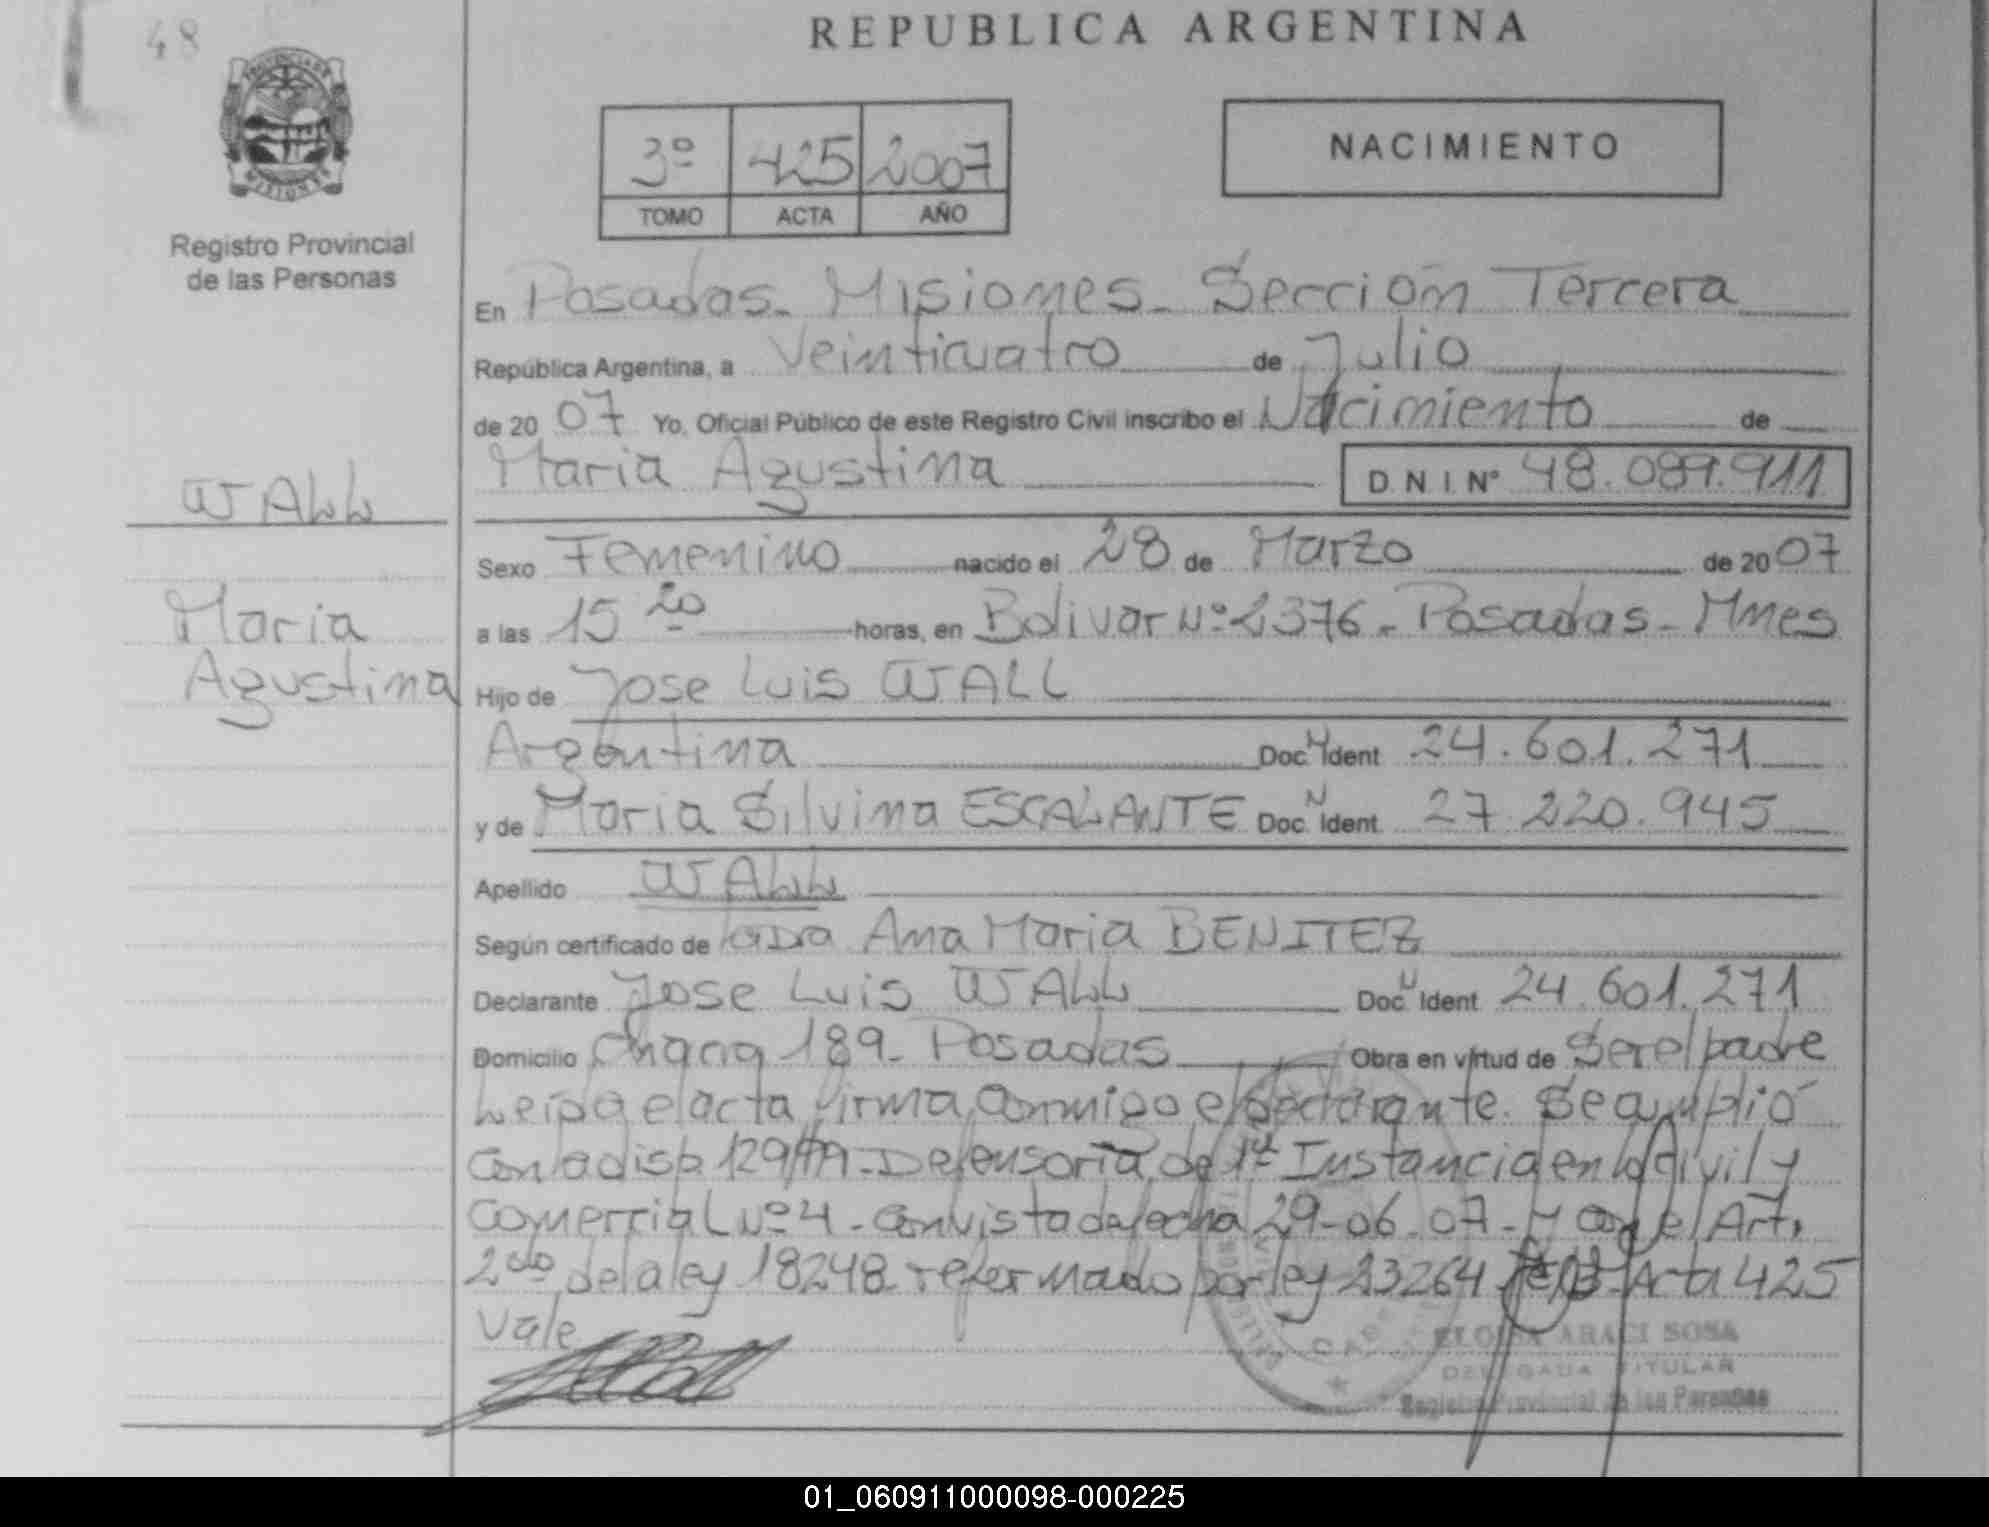 48
REPUBLICA ARGENTINA
PROVINCIA DE
MISIONES
3º 425 2007
TOMO ACTA AÑO
NACIMIENTO
Registro Provincial
de las Personas
En Posadas - Misiones - Sección Tercera
República Argentina, a Veinticuatro de Julio
de 20 07 Yo, Oficial Público de este Registro Civil inscribo el Nacimiento de
Maria Agustina D.N.I. Nº 48.089.911
WALL
Sexo Femenino nacido el 28 de Marzo de 20 07
Maria
a las 15 20 horas, en Bolivar Nº 2376 - Posadas - Mnes
Agustina
Hijo de Jose Luis WALL
Argentina Doc. N Ident 24.601.271
y de Maria Silvina ESCALANTE Doc. N Ident. 27.220.945
Apellido WALL
Según certificado de la Dra Ana Maria BENITEZ
Declarante Jose Luis WALL Doc. N Ident 24.601.271
Domicilio 189 - Posadas Obra en virtud de Ser el padre
Leida el acta firma conmigo el declarante. Se cumplió
con la disp. 129/99 - Defensoria de 1ª Instancia en lo Civil y
Comercial Nº 4 - con vista de fecha 29-06-07 - y con el Art.
2do de la ley 18248 reformado por ley 23264 Acta 425
Vale
ELOISA ARACI SOSA
DELEGADA TITULAR
Registro Provincial de las Personas
01_060911000098-000225